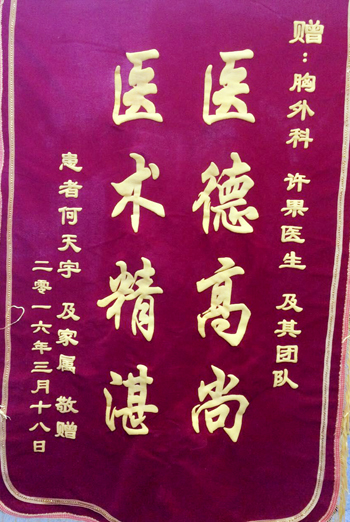 赠：胸外科 许果医生 及其团队
医德高尚
医术精湛
患者何天宇 及家属 敬赠
二零一六年三月十八日